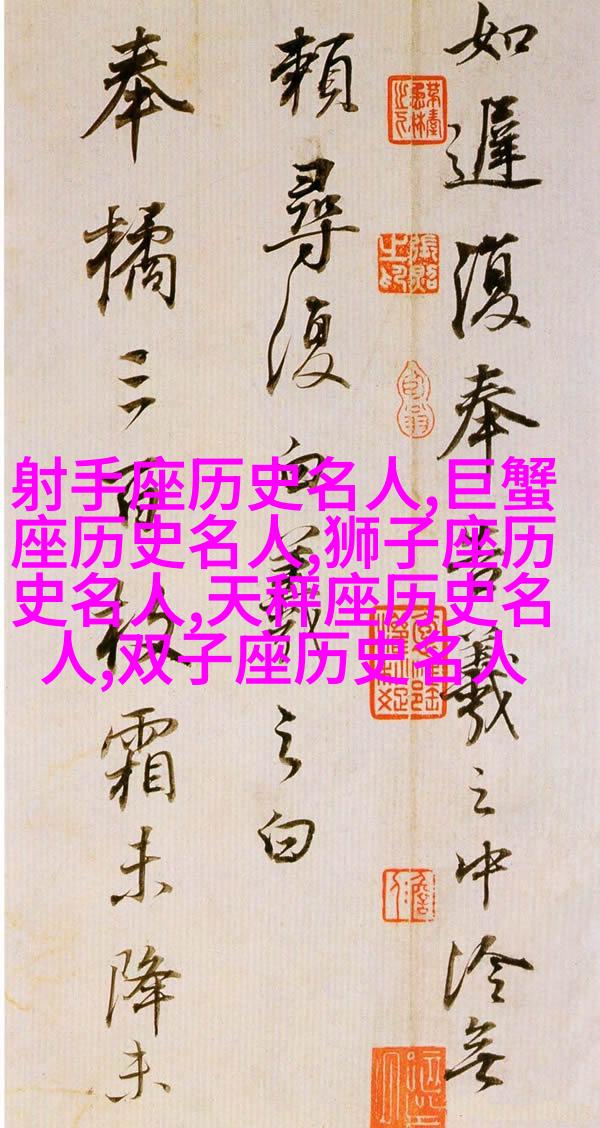 如遲復奉告羲之中冷無
賴尋復白羲之白
奉橘三百枚霜未降未
射手座历史名人,巨蟹
座历史名人,狮子座历
史名人,天秤座历史名
人,双子座历史名人